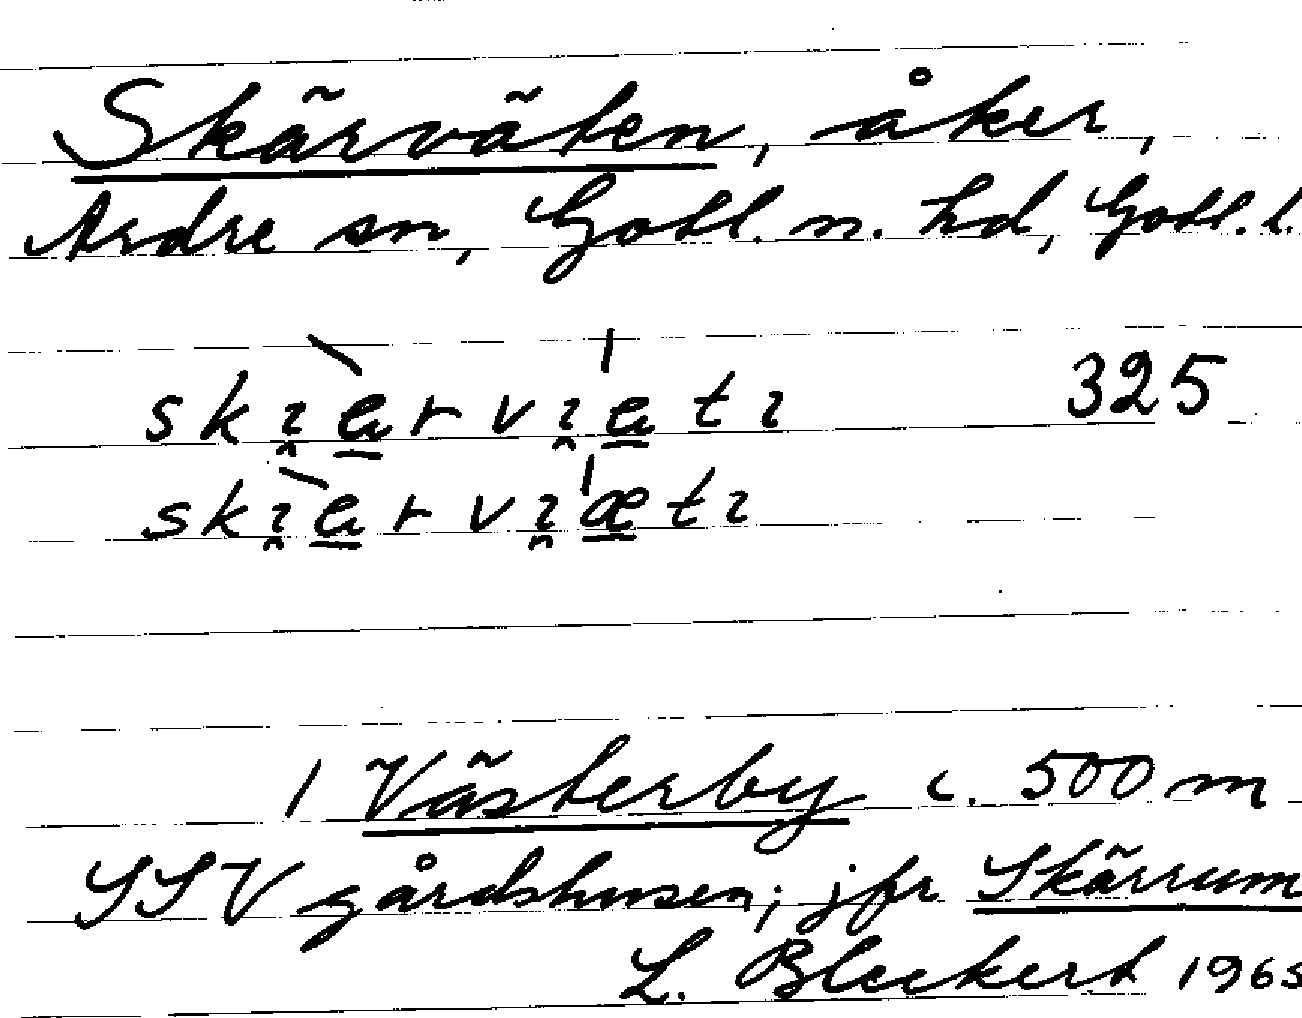 Skärväten, åker,
Ardre sn, Gotl. n. hd, Gotl. l.
skı̯e̲rvı̯e̲tı 325
skı̯e̲rvı̯æ̲tı
/ Västerby c. 500 m
SSV gårdshusen; jfr Skärrum
L. Bleckert 1965